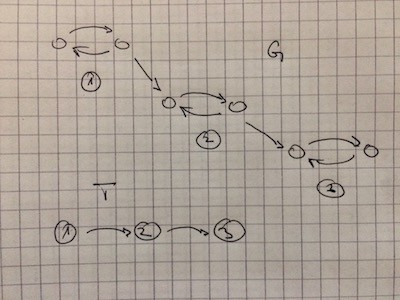 G
1
2
3
T
1 2 3